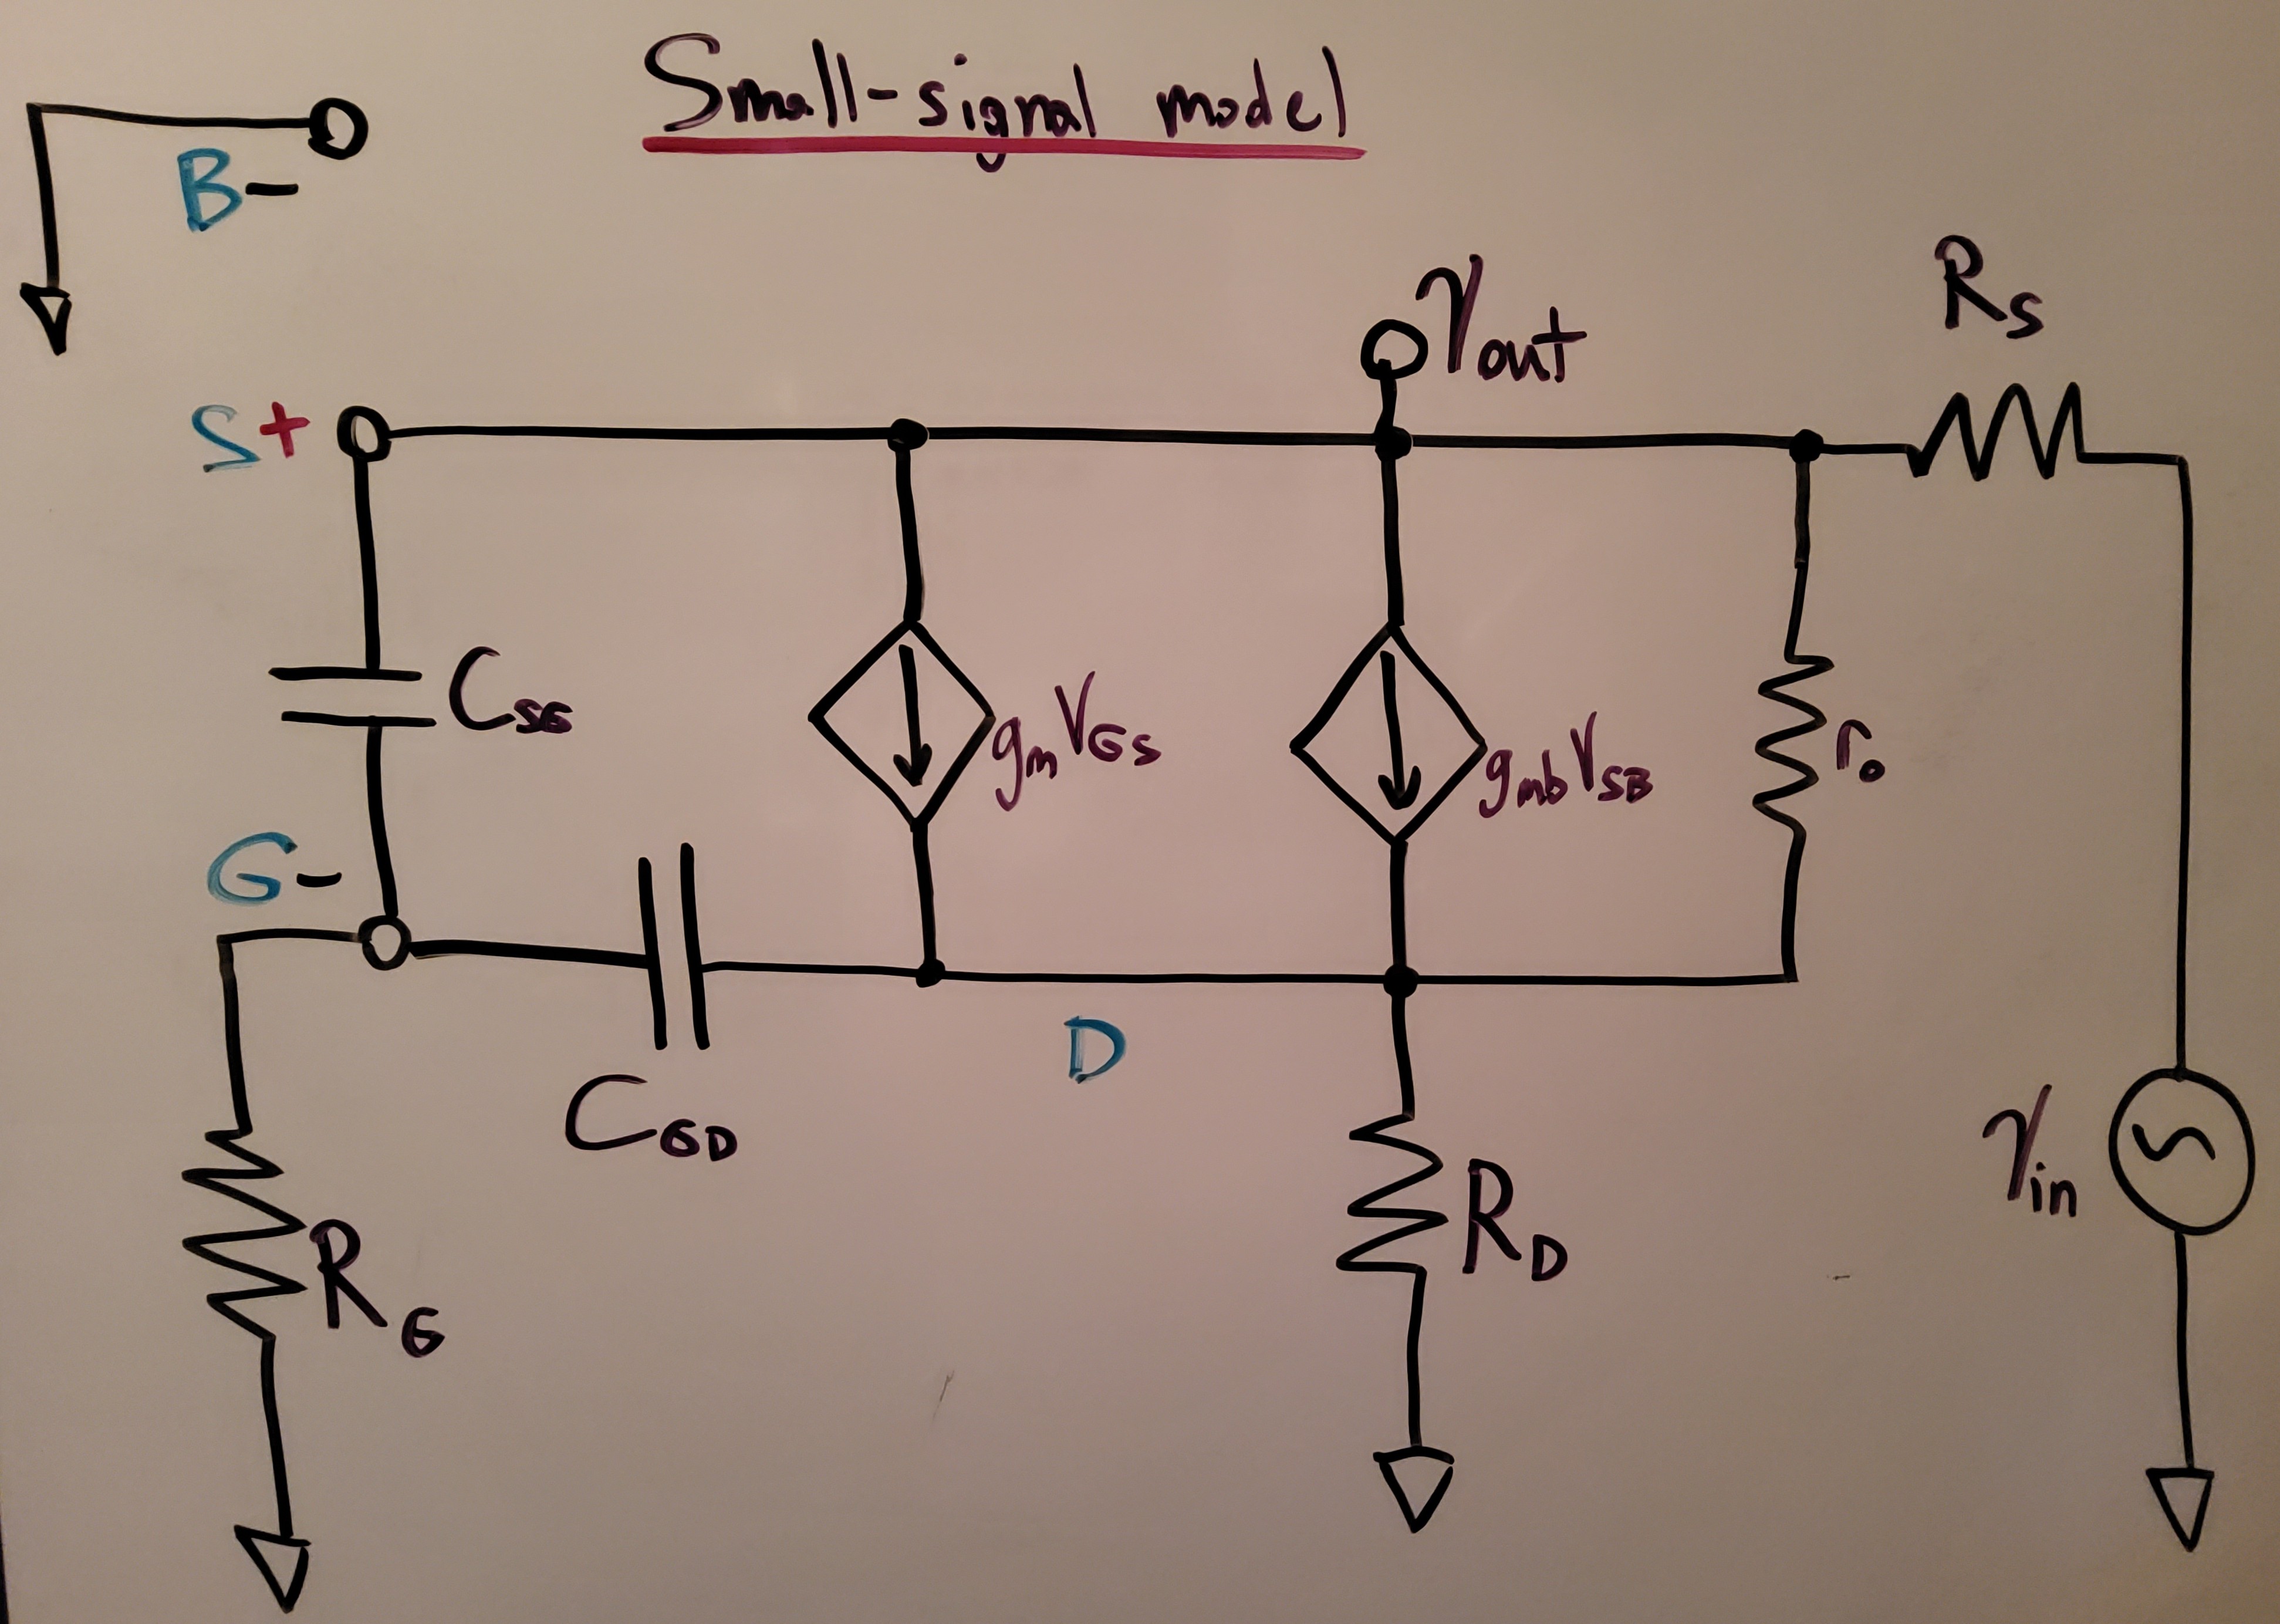 Small-signal model
B-
Vout
RS
S+
CSG
gmVGS
gmbVSB
ro
G-
CGD
D
RG
RD
Vin